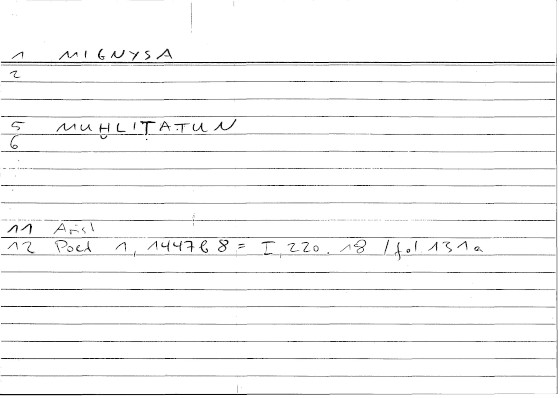 1 MIGNYSA
2
5 MUḪLIṬATUN
6
11 Arist
12 Poet 1, 1447b8 = I, 220.18 / fol 131a